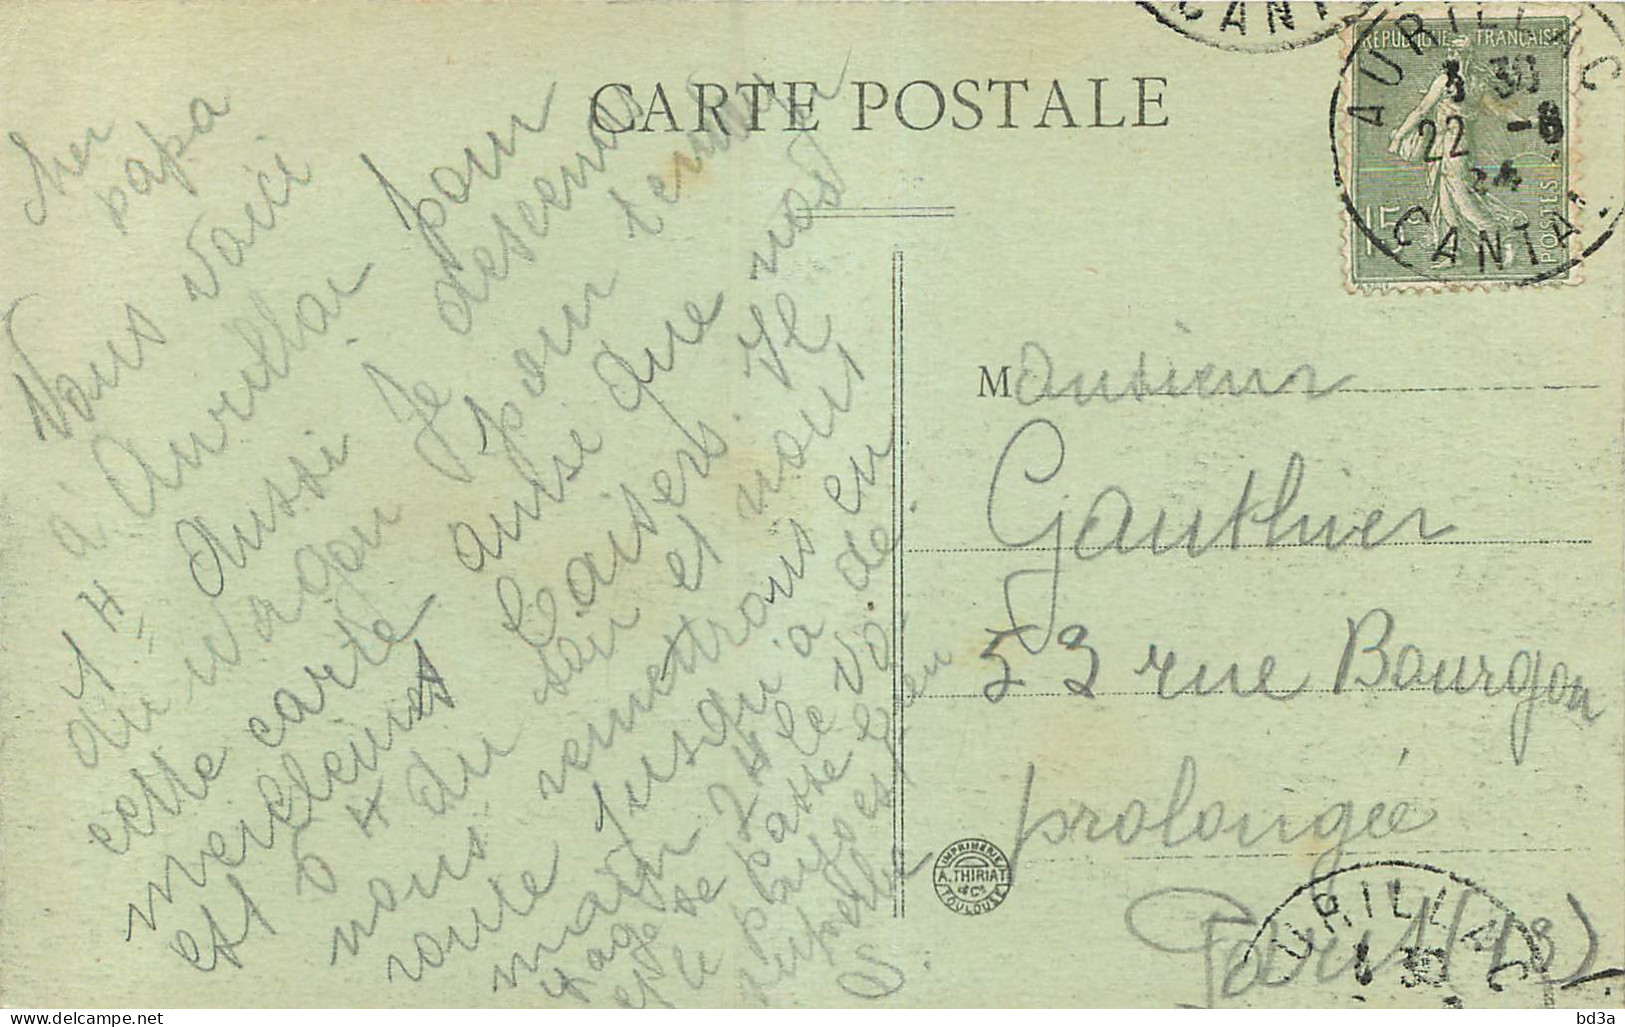 CARTE POSTALE
cher
papa
Nous voici
à Aurillac pour
1 H, aussi je descends
du wagon pour termin
cette carte ainsi que nos
meilleures baisers. Il
est 5 H du soir et nous
nous remettrons en
route jusqu'à de
main 2 H le
voyage se passe
et le pays est bien
superbe
Monsieur
Gauthier
53 rue Bourgon
prolongée
Paris (13)
REPUBLIQUE FRANÇAISE
15c
POSTES
AURILLAC
30
22 -8
24
CANTAL
CANTAL
AURILLAC
30
IMPRIMERIE
A. THIRIAT
& Cie
TOULOUSE
delcampe.net
bd3a